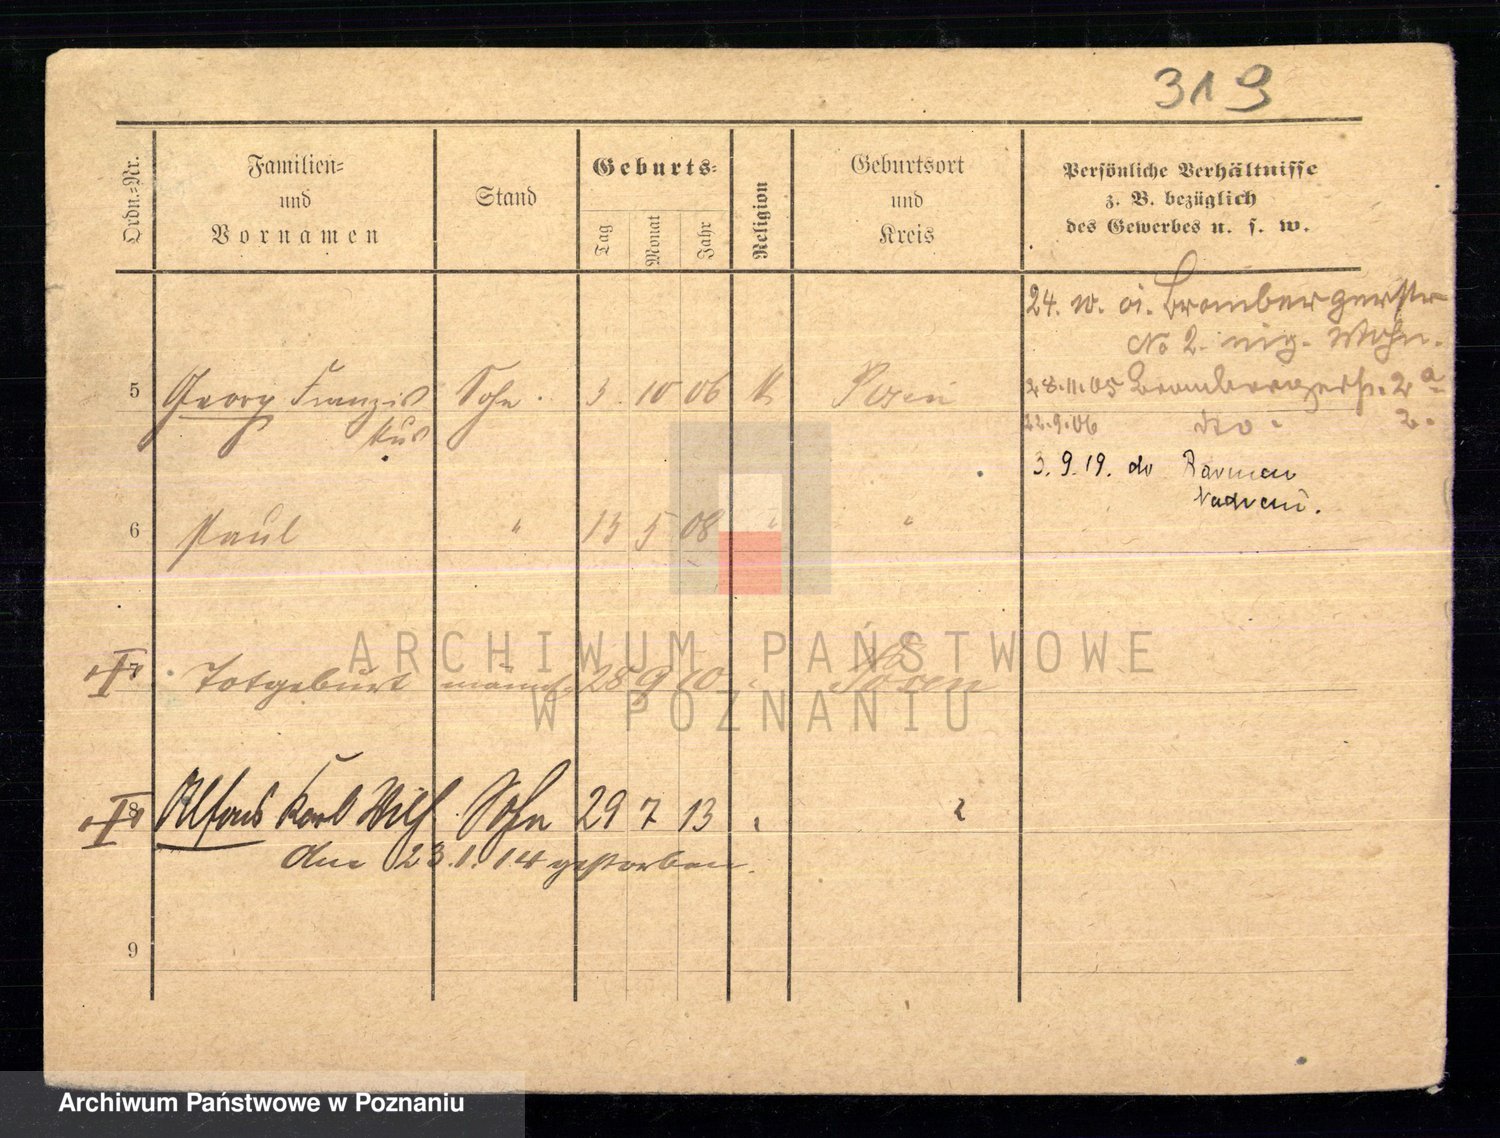 319
Ordn.-Nr.
Familien-
und
Vornamen
Stand
Geburts-
Tag
Monat
Jahr
Religion
Geburtsort
und
Kreis
Persönliche Verhältnisse
z. B. bezüglich
des Gewerbes u. s. w.
24. Brombergerstr
No 2. Wohn.
5 Georg Franzis Sohn 3 10 06 k Posen
kus
28.11.05 Brombergerstr. 2a
22.9.06 do 2.
3.9.19. do
6 Paul " 13 5 08 " "
7 Totgeburt männl. 28 9 10 Posen
8 Alfons Karl Wilh Sohn 29 7 13
den 23.1.14 gestorben.
9
ARCHIWUM PAŃSTWOWE
W POZNANIU
Archiwum Państwowe w Poznaniu